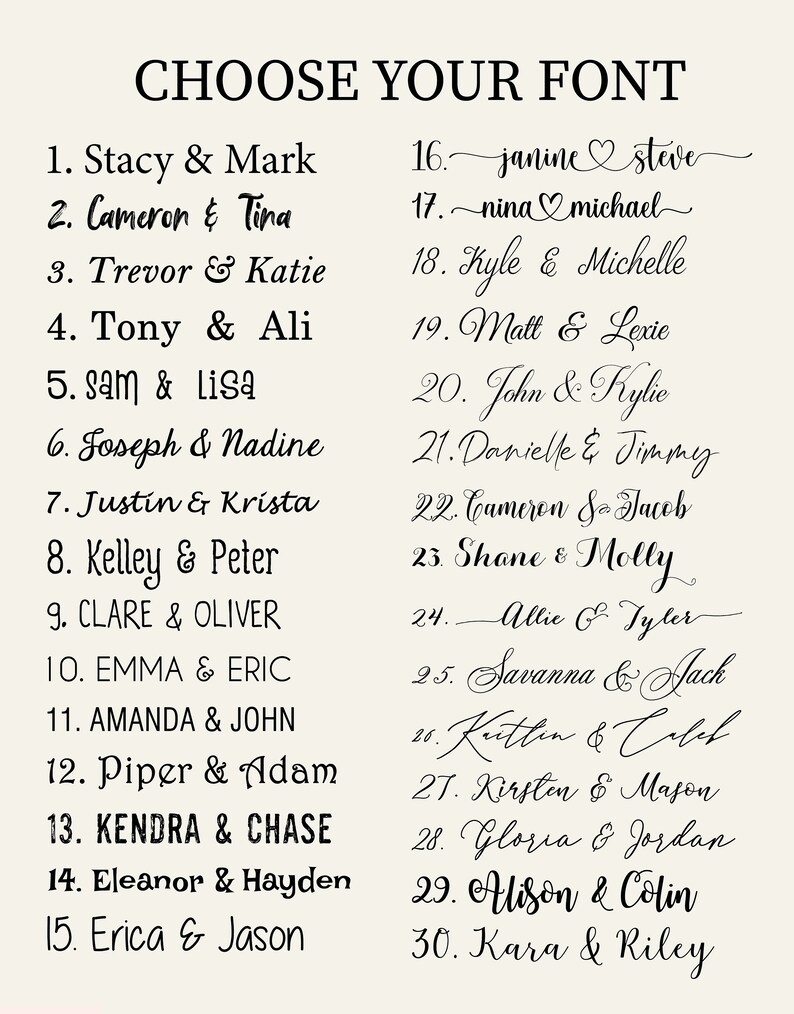 CHOOSE YOUR FONT
1. Stacy & Mark
2. Cameron & Tina
3. Trevor & Katie
4. Tony & Ali
5. Sam & Lisa
6. Joseph & Nadine
7. Justin & Krista
8. Kelley & Peter
9. CLARE & OLIVER
10. EMMA & ERIC
11. AMANDA & JOHN
12. Piper & Adam
13. KENDRA & CHASE
14. Eleanor & Hayden
15. Erica & Jason
16. janine♡steve
17. nina♡michael
18. Kyle & Michelle
19. Matt & Lexie
20. John & Kylie
21. Danielle & Jimmy
22. Cameron & Jacob
23. Shane & Molly
24. Allie & Tyler
25. Savanna & Jack
26. Kaitlin & Caleb
27. Kirsten & Mason
28. Gloria & Jordan
29. Alison & Colin
30. Kara & Riley